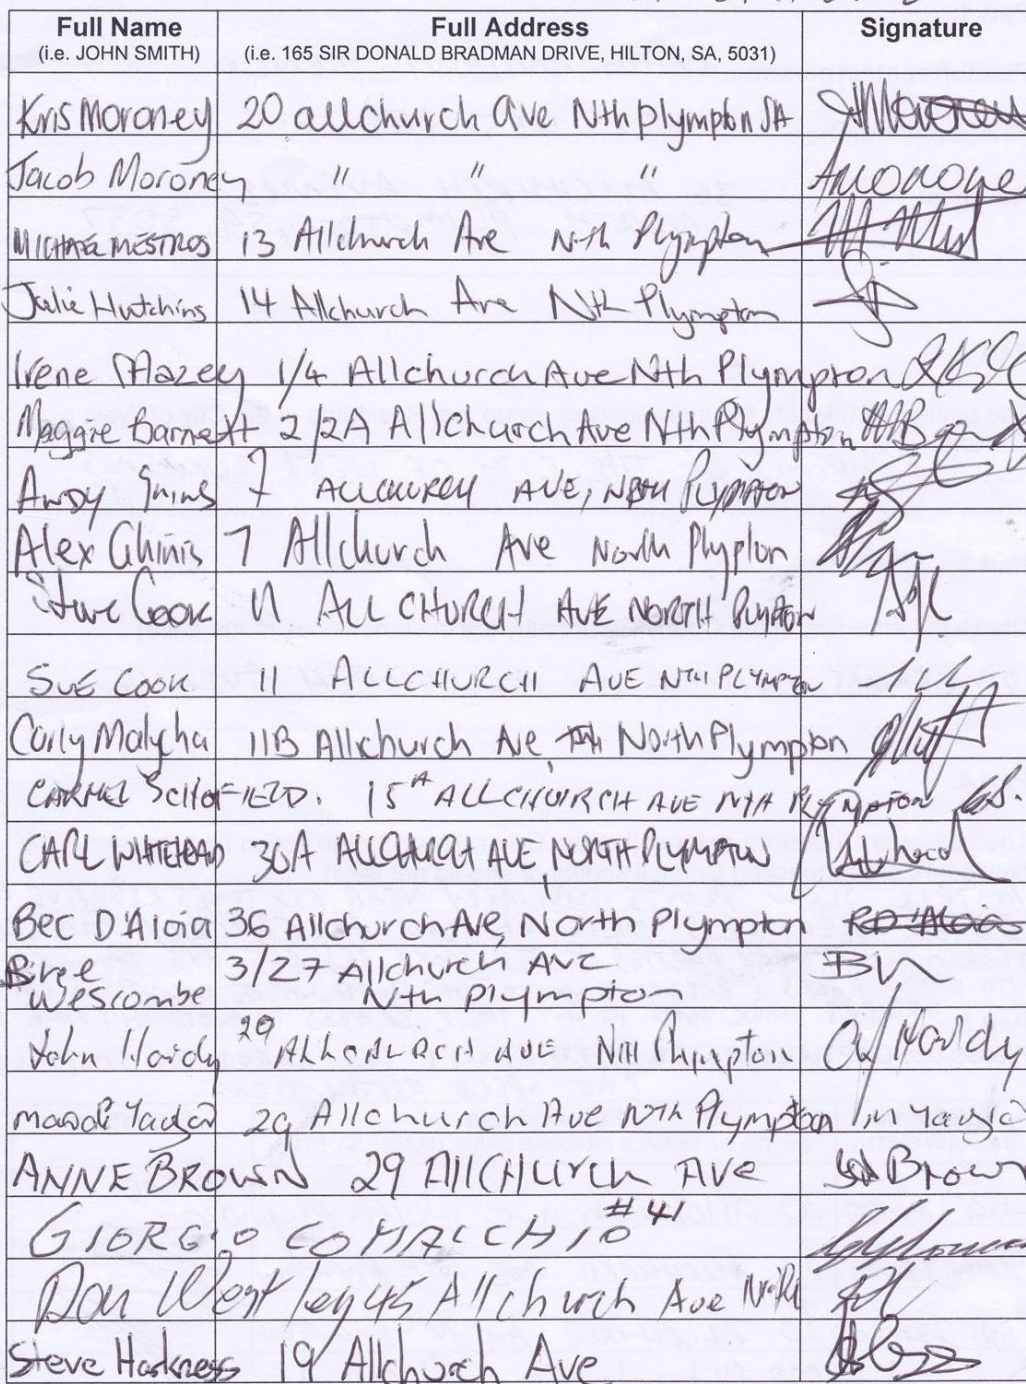 Full Name Full Address Signature
(i.e. JOHN SMITH) (i.e. 165 SIR DONALD BRADMAN DRIVE, HILTON, SA, 5031)
Kris Moroney 20 allchurch ave Nth plympton SA
Jacob Moroney " " "
MICHAEL MESTROS 13 Allchurch Ave Nth Plympton
Julie Hutchins 14 Allchurch Ave Nth Plympton
Irene Mazey 1/4 Allchurch Ave Nth Plympton
Maggie Barnett 2/2A Allchurch Ave Nth Plympton
ANDY 7 ALLCHURCH AVE, NORTH PLYMPTON
Alex Ghinis 7 Allchurch Ave North Plypton
Steve Cook 11 ALLCHURCH AVE NORTH PLYMPTON
SUE COOK 11 ALLCHURCH AVE NTH PLYMPTON
Carly Malycha 11B Allchurch Ave, North Plympton
CARMEL SCHOFIELD. 15A ALLCHURCH AVE NTH PLYMPTON C.S.
CARL WHITEHEAD 30A ALLCHURCH AVE, NORTH PLYMPTON
Bec D'Aloia 36 Allchurch Ave, North Plympton RD'Aloia
Bree 3/27 Allchurch Ave BW
Wescombe Nth Plympton
John Hardy 29 ALLCHURCH AVE Nth Plympton J Hardy
29 Allchurch Ave Nth Plympton
ANNE BROWN 29 Allchurch Ave Brown
GIORGIO COMACCHIO #41
Don Westley 45 Allchurch Ave Nth
Steve Harkness 19 Allchurch Ave